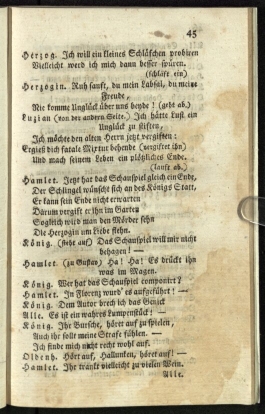 45
Herzog. Ich will ein kleines Schläfchen probiren
Vielleicht werd ich mich dann besser spüren.
(schläft ein)
Herzogin. Ruh sanft, du mein Labsal, du meine
Freude,
Nie komme Unglück über uns beyde! (geht ab.)
Luzian (von der andern Seite.) Ich hätte Lust ein
Unglück zu stiften,
Ich möchte den alten Herrn jetzt vergiften:
Ergieß dich fatale Mirtur behende (vergiftet ihn)
Und mach seinem Leben ein plötzliches Ende.
(lauft ab.)
Hamlet. Jetzt hat das Schauspiel gleich ein Ende,
Der Schlingel wünschte sich an des Königs Statt,
Er kann sein Ende nicht erwarten
Darum vergift er ihn im Garten
Sogleich wird man den Mörder sehn
Die Herzogin um Liebe flehn.
König. (steht auf) Das Schauspiel will mir nicht
behagen! —
Hamlet. (zu Gustav) Ha! Ha! Es drückt ihn
was im Magen.
König. Wer hat das Schauspiel componirt?
Hamlet. In Florenz wurd' es aufgeführt! —
König. Dem Autor brech ich das Genick
Alle. Es ist ein wahres Lumpenstück! —
König. Ihr Bursche, höret auf zu spielen,
Auch ihr sollt meine Strafe fühlen. —
Ich finde mich nicht recht wohl auf.
Oldenh. Hört auf, Hallunken, höret auf! —
Hamlet. Ihr trankt vielleicht zu vielen Wein.
Alle.